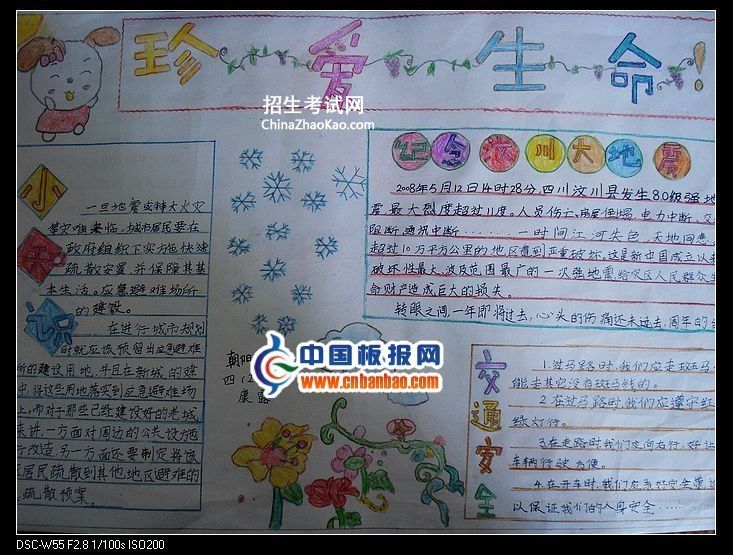 珍爱生命!
招生考试网
ChinaZhaoKao.com
小知识
一旦地震或特大火灾
等灾难来临,城市居民要在
政府组织下实施快速
疏散安置,并保障其基
本生活。应急避难场所
的建设。
在进行城市规划
时就应该预留出应急避难
所的建设用地,并且在新城的建
中,将这些用地落实到应急避难场
上。而对于那些已经建设好的老城
来讲,一方面对周边的公共设施
行改造,另一方面还要制定将该
区居民疏散到其他地区避难的
疏散预案。
纪念汶川大地震
2008年5月12日14时28分,四川汶川县发生8.0级强地
震,最大烈度超过11度。人员伤亡,房屋倒塌,电力中断、交
阻断,通讯中断……一时间江河失色,天地同悲,
超过10万平方公里的地区遭到严重破坏。这是新中国成立以来
破坏性最大、波及范围最广的一次强地震,给灾区人民群众生
命财产造成巨大的损失。
转眼之间,一年即将过去,心头的伤痛还未过去,周年的
朝阳
四(2
康露
中国板报网
www.cnbanbao.com
交通安全
1.过马路时,我们应走斑马
能去其它没有斑马线的。
2.在过马路时我们应遵守红
绿灯行。
3.在走路时我们应向右行,好让
车辆行驶方便。
4.在开车时,我们应系好安全带,
以保证我们的人身安全……
DSC-W55 F2.8 1/100s ISO200